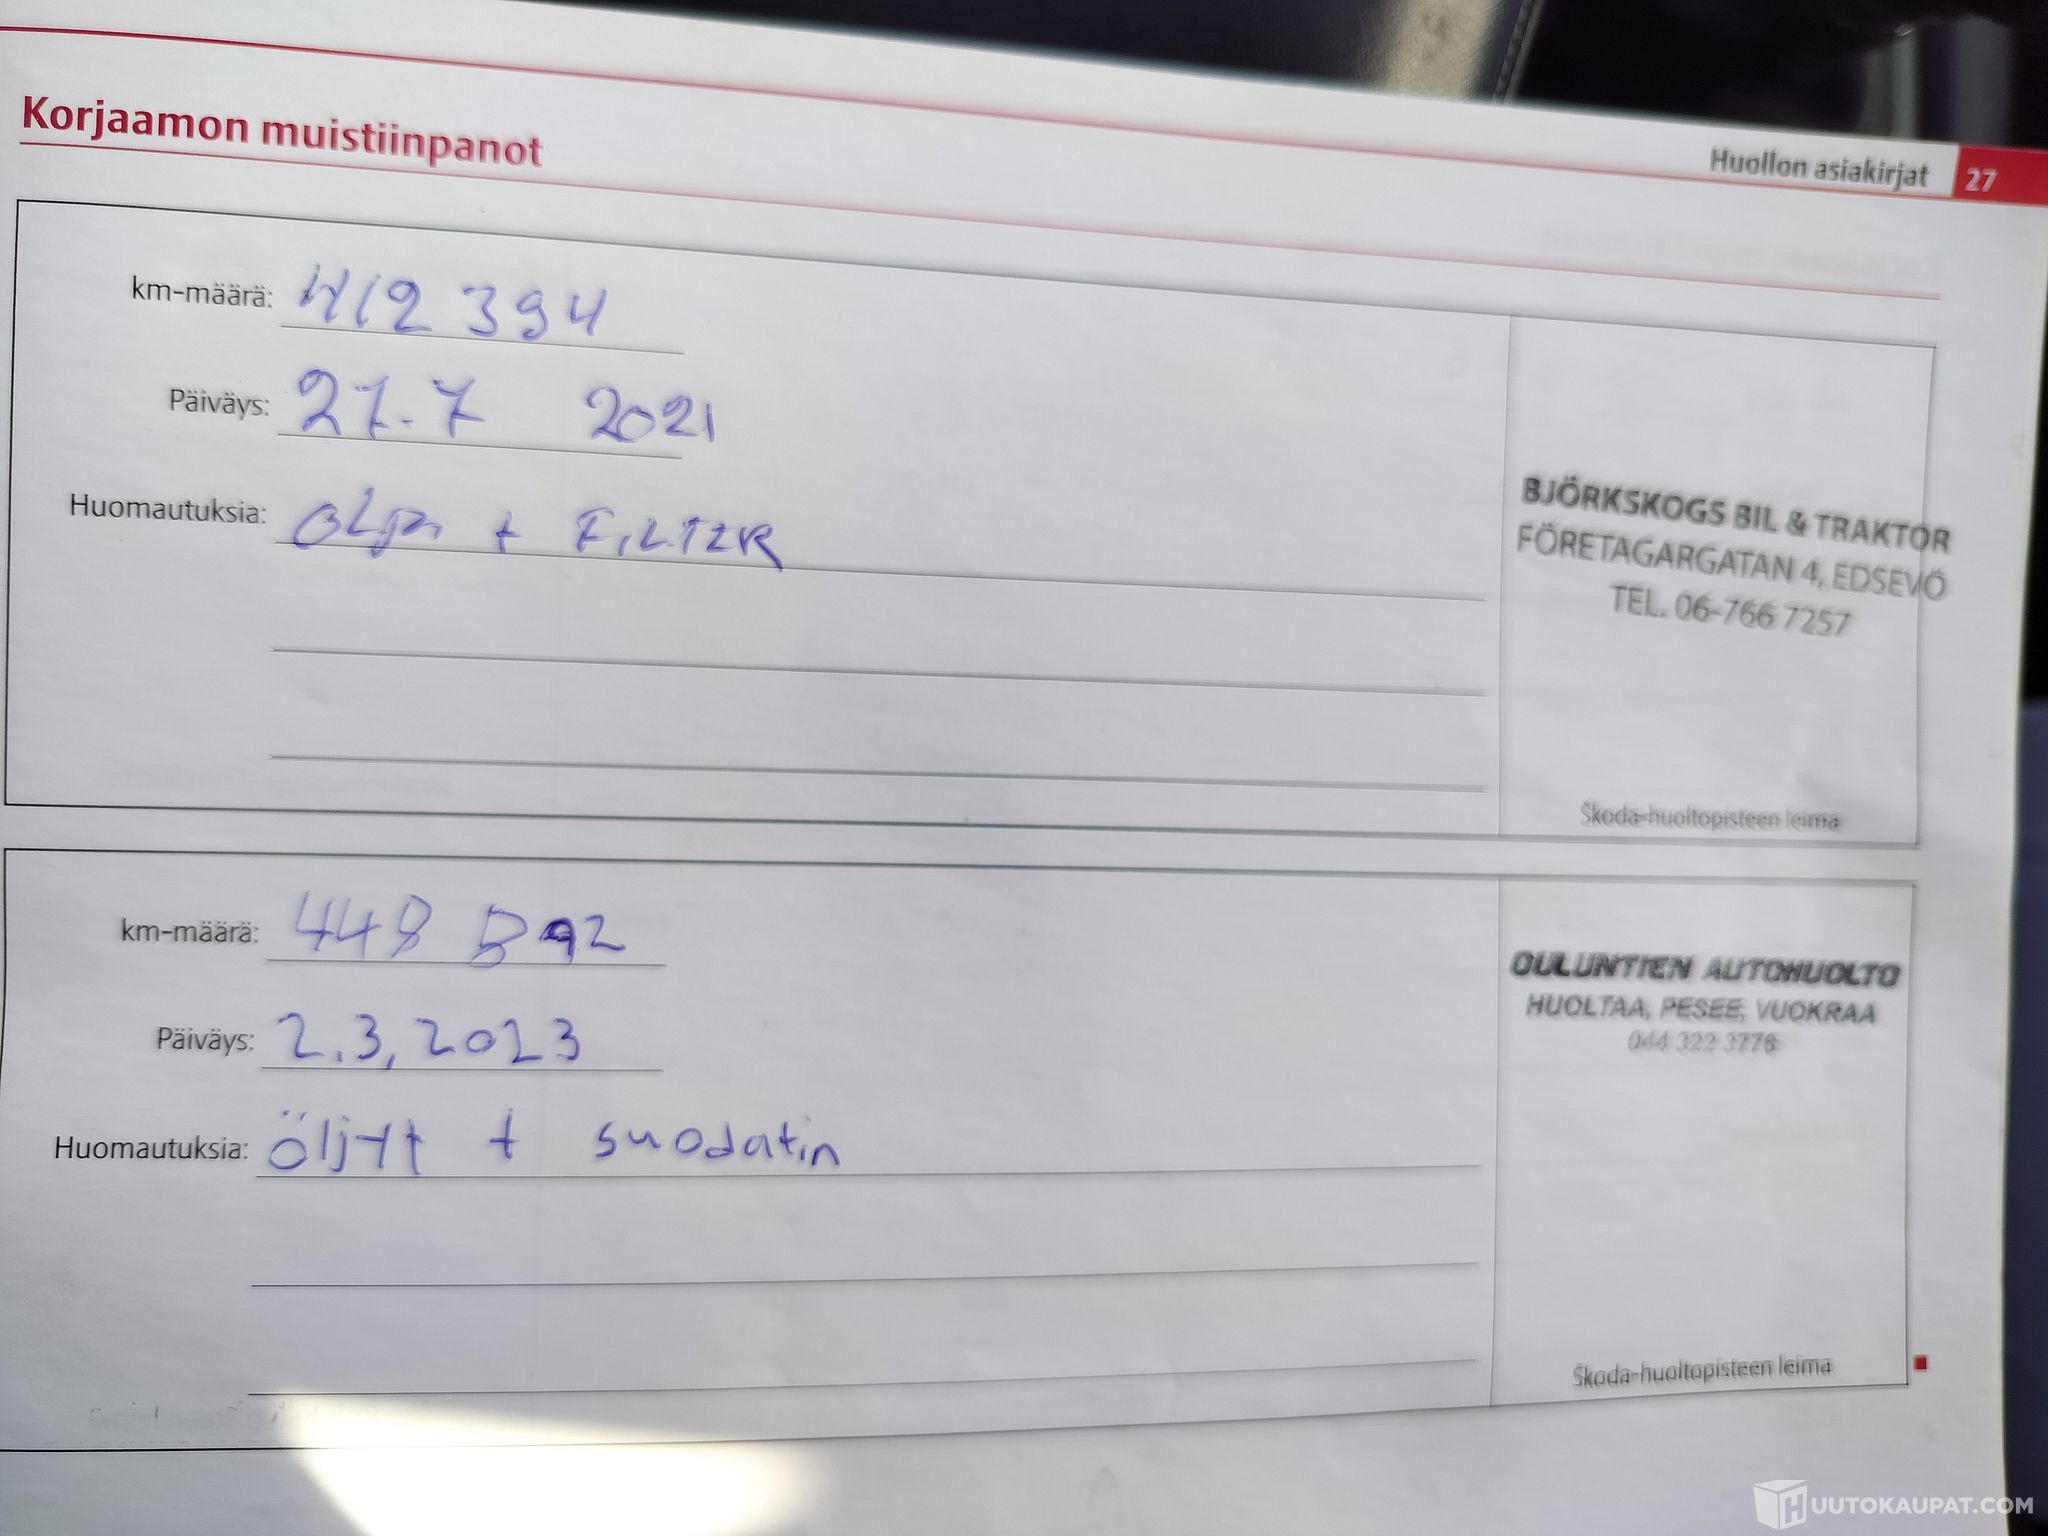 Korjaamon muistiinpanot
Huollon asiakirjat 27
km-määrä: 412 394
Päiväys: 27.7 2021
Huomautuksia: + FILTER
BJÖRKSKOGS BIL & TRAKTOR
FÖRETAGARGATAN 4, EDSEVÖ
TEL. 06-766 7257
Škoda-huoltopisteen leima
km-määrä: 448
Päiväys: 2.3,2023
Huomautuksia: öljyt + suodatin
OULUNTIEN AUTOHUOLTO
HUOLTAA, PESEE, VUOKRAA
044 322 3776
Škoda-huoltopisteen leima
HUUTOKAUPAT.COM